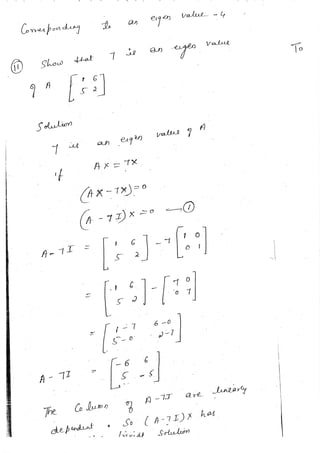 Corresponding to an eigen value - 4
(11) Show that 7 is an eigen value To
of A [1 6
5 2]
Solution
7 is an eigen value of A
if AX = 7X
(AX - 7X) = 0
(A - 7I) X = 0 — (1)
A - 7I = [1 6
5 2] - 7 [1 0
0 1]
= [1 6
5 2] - [7 0
0 7]
= [1-7 6-0
5-0 2-7]
A - 7I = [-6 6
5 -5]
The Column of A - 7I are linearly
dependent . So (A - 7I) X has
Solution